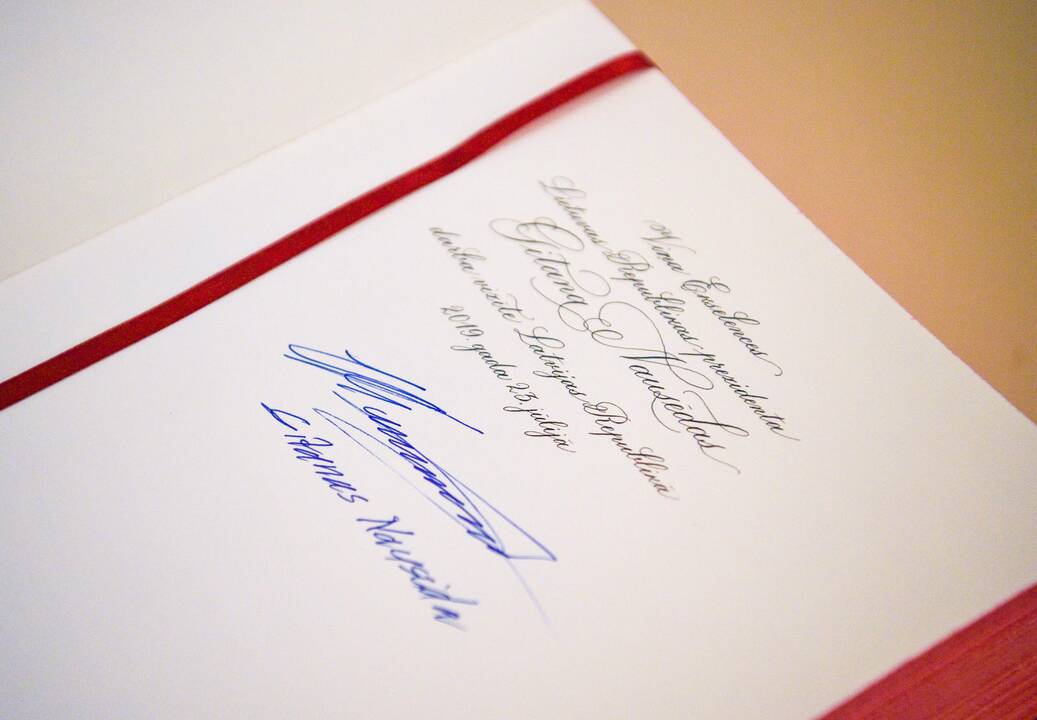 Viņa Ekselences
Lietuvas Republikas prezidenta
Gitana Nausēdas
darba vizīte Latvijas Republikā
2019. gada 23. jūlijā
Gitanas Nausėda